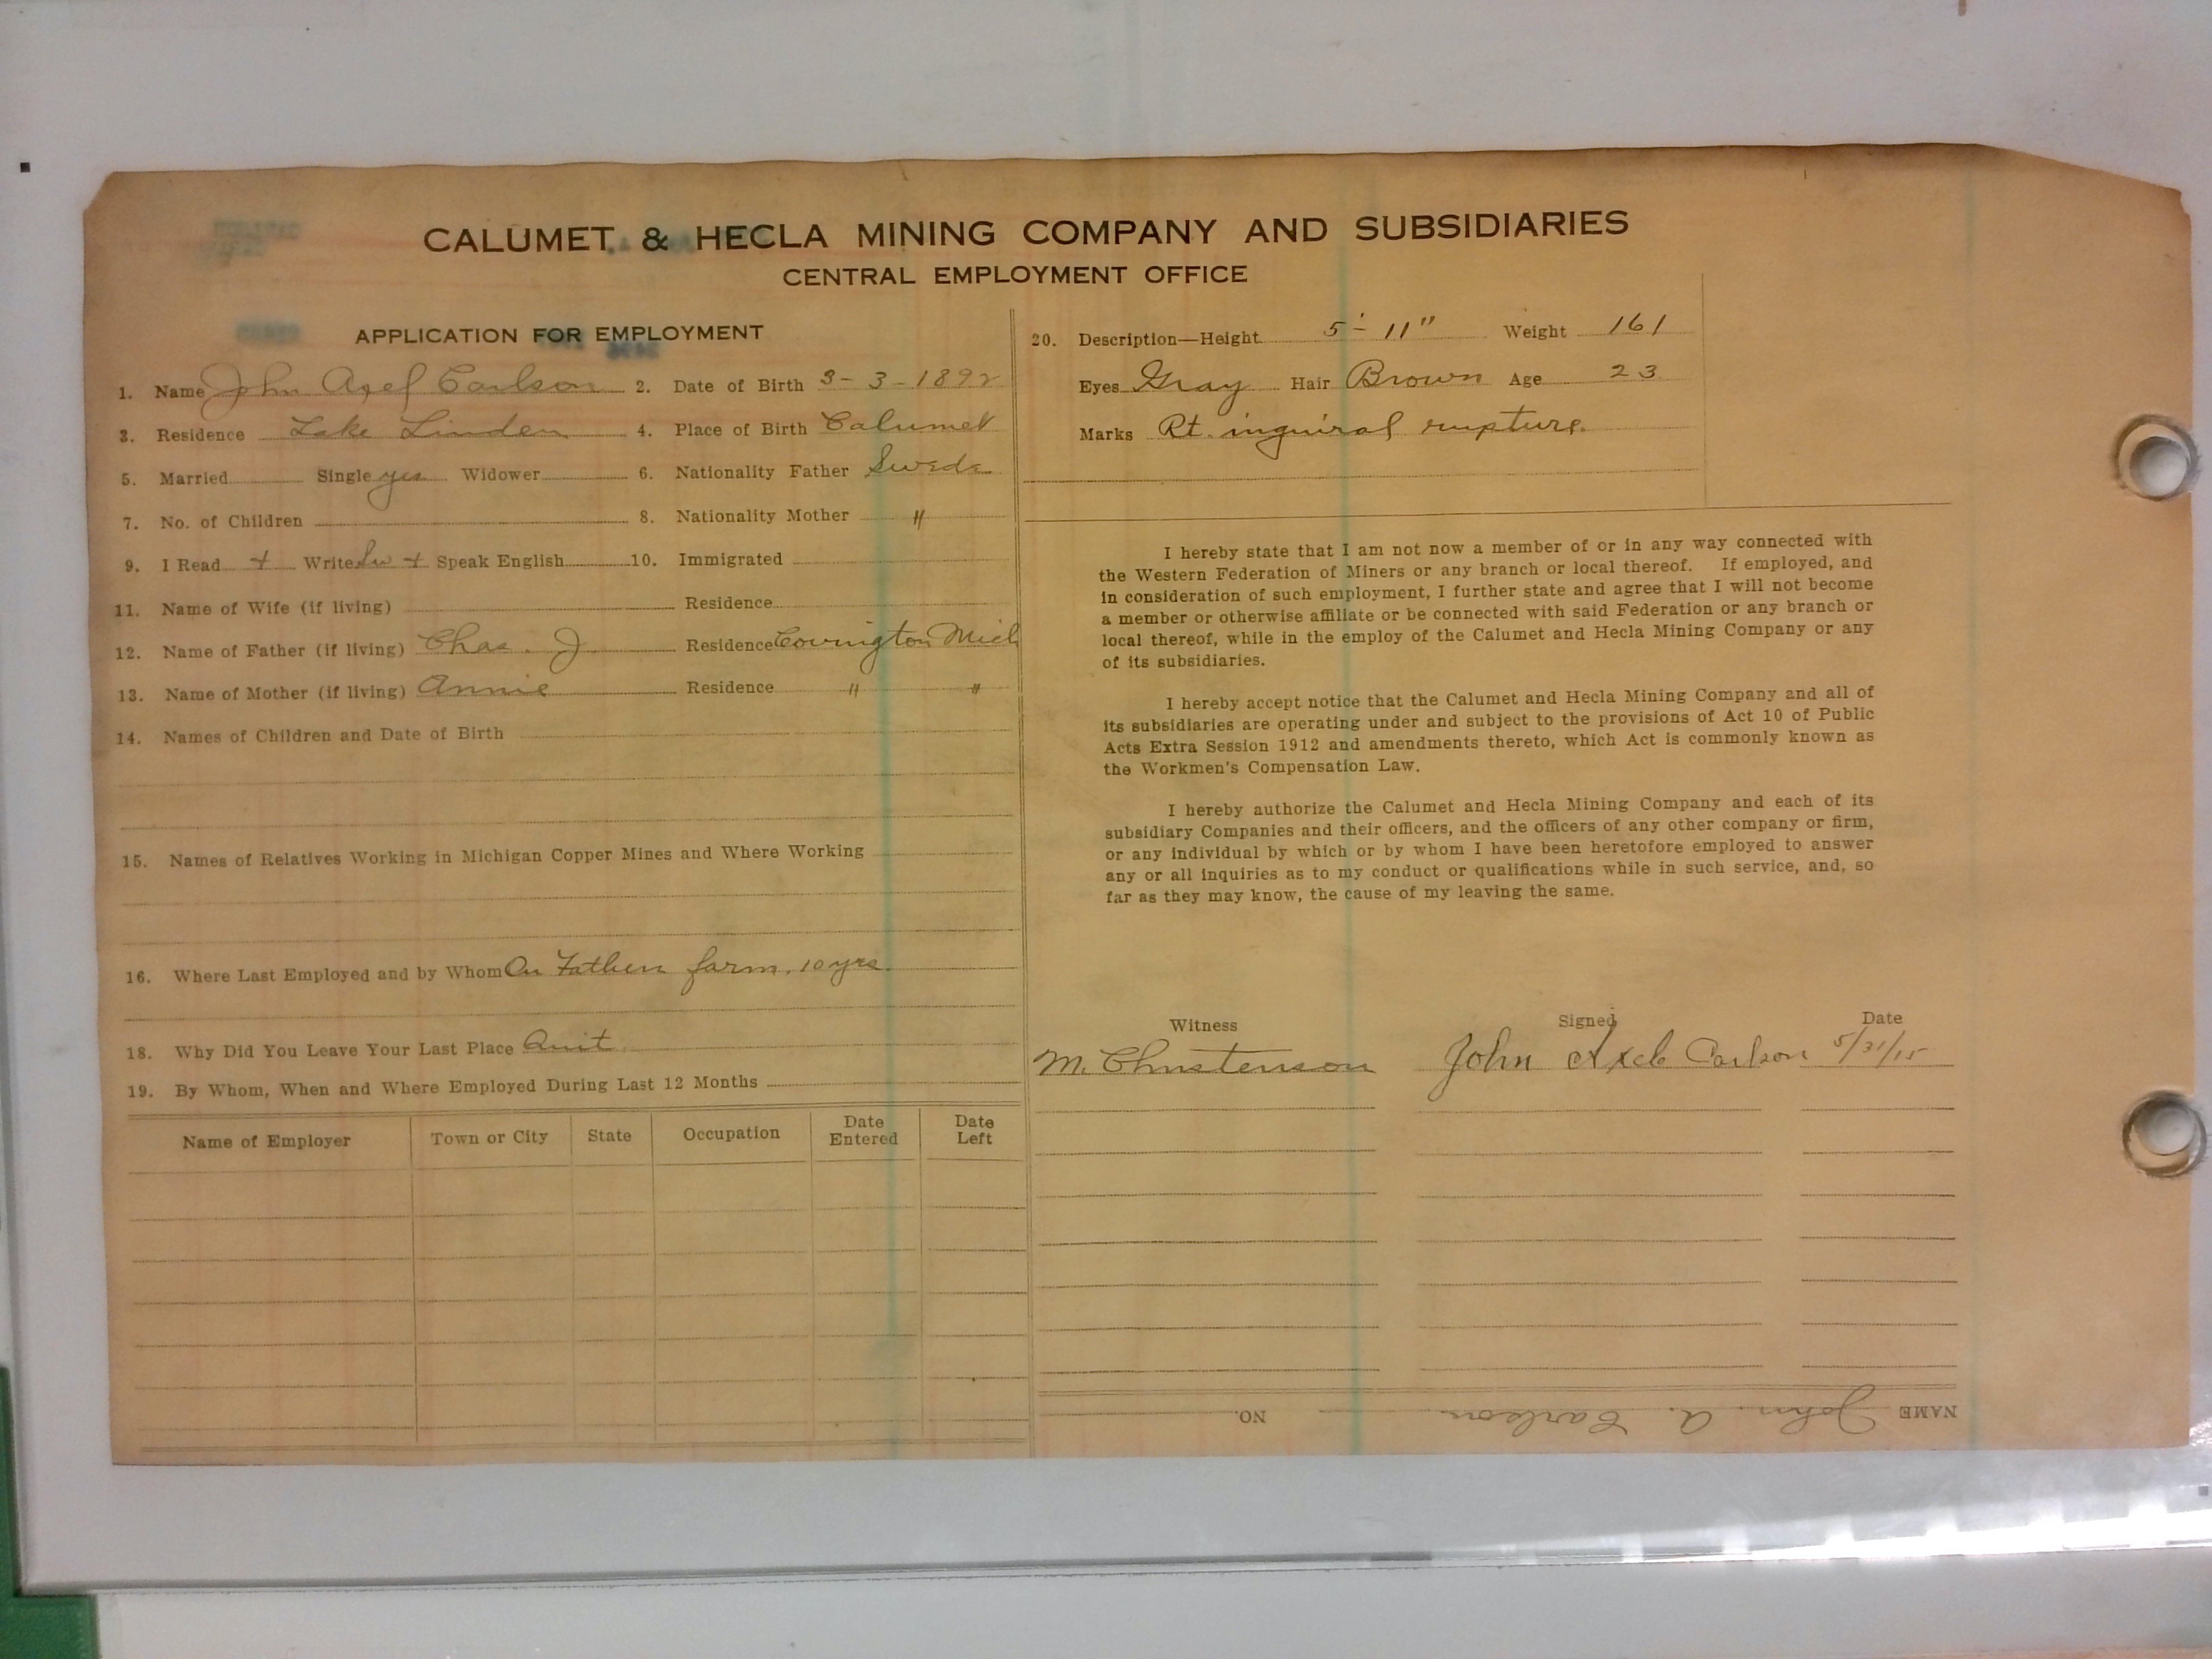 CALUMET & HECLA MINING COMPANY AND SUBSIDIARIES
CENTRAL EMPLOYMENT OFFICE
APPLICATION FOR EMPLOYMENT
1. Name John Axel Carlson 2. Date of Birth 3-3-1892
3. Residence Lake Linden 4. Place of Birth Calumet
5. Married Single yes Widower 6. Nationality Father Swede
7. No. of Children 8. Nationality Mother "
9. I Read + Write Sw + Speak English 10. Immigrated
11. Name of Wife (if living) Residence
12. Name of Father (if living) Chas. J Residence Covington Mich
13. Name of Mother (if living) Annie Residence " "
14. Names of Children and Date of Birth
15. Names of Relatives Working in Michigan Copper Mines and Where Working
16. Where Last Employed and by Whom On Fathers farm. 10 yrs.
18. Why Did You Leave Your Last Place Quit
19. By Whom, When and Where Employed During Last 12 Months
Name of Employer Town or City State Occupation Date Entered Date Left
20. Description—Height 5'-11" Weight 161
Eyes Gray Hair Brown Age 23
Marks Rt. inguinal rupture.
I hereby state that I am not now a member of or in any way connected with
the Western Federation of Miners or any branch or local thereof. If employed, and
in consideration of such employment, I further state and agree that I will not become
a member or otherwise affiliate or be connected with said Federation or any branch or
local thereof, while in the employ of the Calumet and Hecla Mining Company or any
of its subsidiaries.
I hereby accept notice that the Calumet and Hecla Mining Company and all of
its subsidiaries are operating under and subject to the provisions of Act 10 of Public
Acts Extra Session 1912 and amendments thereto, which Act is commonly known as
the Workmen's Compensation Law.
I hereby authorize the Calumet and Hecla Mining Company and each of its
subsidiary Companies and their officers, and the officers of any other company or firm,
or any individual by which or by whom I have been heretofore employed to answer
any or all inquiries as to my conduct or qualifications while in such service, and, so
far as they may know, the cause of my leaving the same.
Witness Signed Date
M. Christenson John Axel Carlson 5/31/15
NAME John. A. Carlson NO.